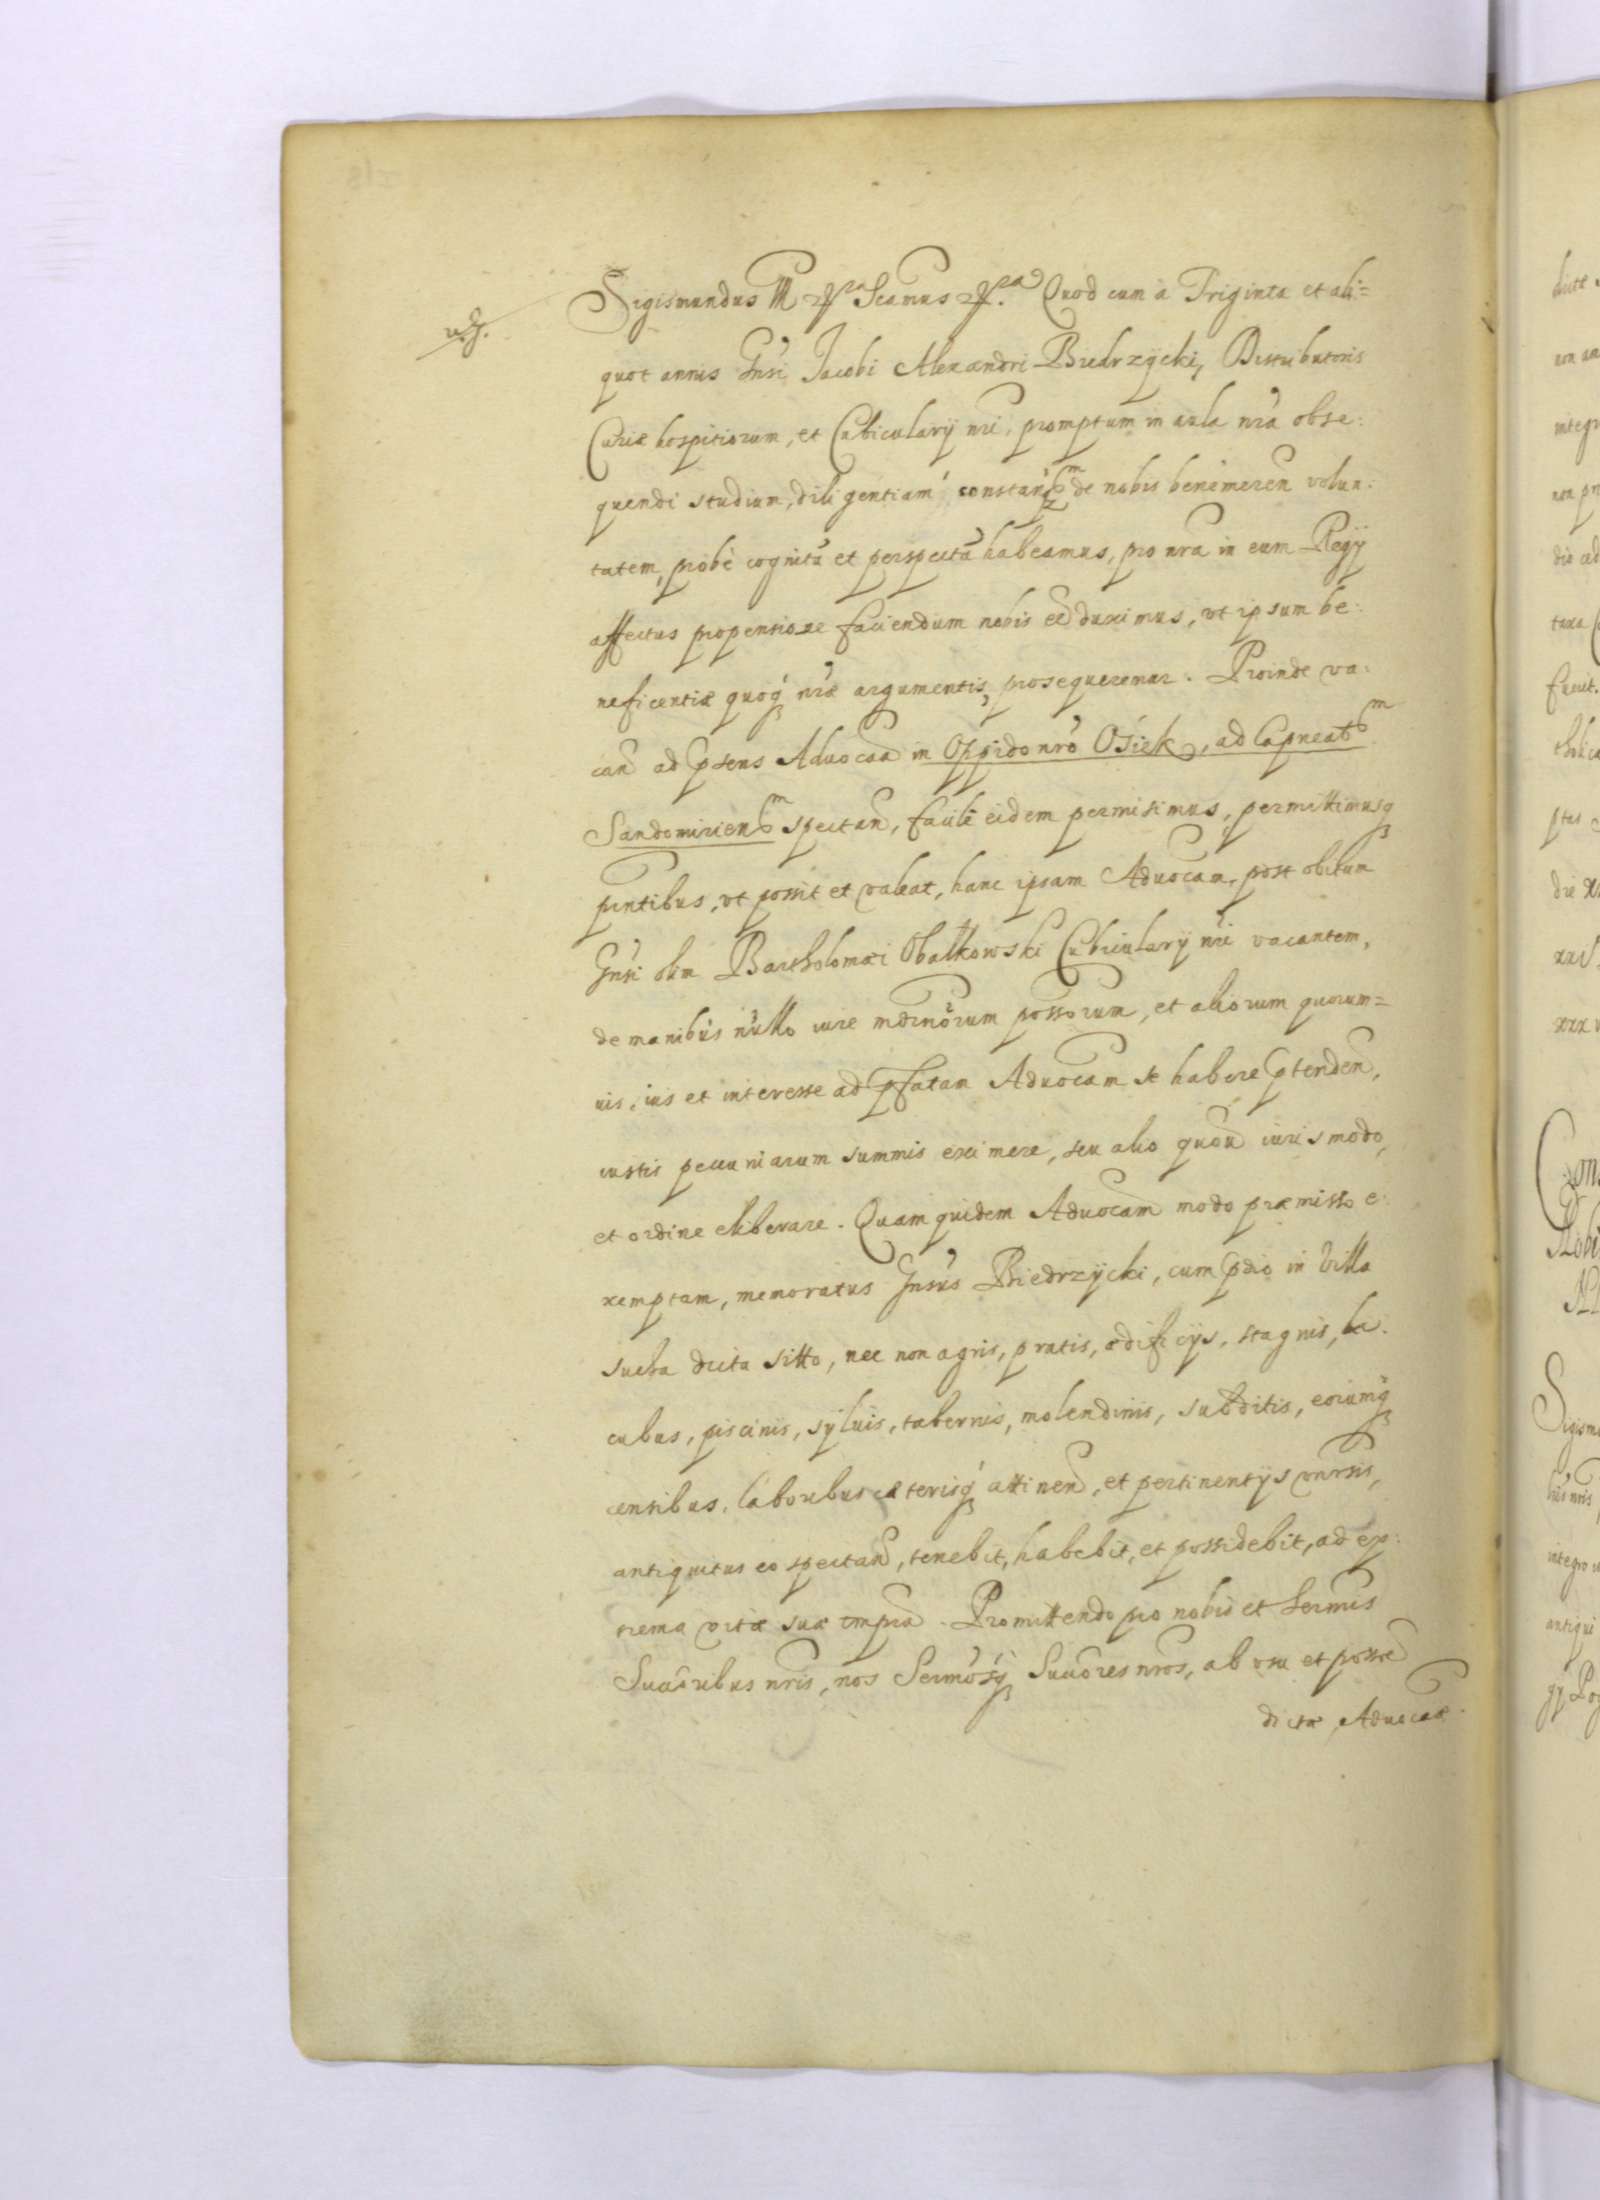 Sigismundus III Scanus Quod cum à Triginta et ali=
quot annis Gnsi Jacobi Alexandri Biedrzycki, Distributoris
Curiæ hospitiorum, et Cubicularij nri, promptum in aula nra obse:
quendi studium, diligentiam constan de nobis benemeren volun:
tatem, probè cognitā et perspectā habeamus, pro nra in eum Regij
affectus propensione faciendum nobis ee duximus, vt ipsum be:
neficentiæ quoq nræ argumentis, prosequeremur. Proinde va:
can ad psens Aduocaa in Oppido nro Osiek, ad Capneat m
Sandomirien m spectan, facilè eidem permisimus, permittimusq
pntibus, vt possit et valeat, hanc ipsam Aduocam, post obitum
Gnsi olim Bartholomæi Obalkowski Cubicularij nri vacantem,
de manibus nullo iure possorum, et aliorum quorum=
uis, ius et interesse ad pfatam Aduocam se habere ptenden,
iustis pecuniarum summis eximere, seu alio quou iuris modo,
et ordine eliberare. Quam quidem Aduocam modo præmisso e:
xemptam, memoratus Gnsus Biedrzycki, cum pdio in Villa
Sucha dicta sitto, nec non agris, pratis, ædificijs, stagnis, la:
cubus, piscinis, syluis, tabernis, molendinis, subditis, eorumq
censibus, laboribus cæterisq attinen, et pertinentijs vnrsis,
antiquitus eo spectan, tenebit, habebit, et possidebit, ad ex:
trema vitæ suæ tmpra. Promittendo pro nobis et Sermis
Succoribus nris, nos Sermosq Succores nros, ab vsu et posse
dictæ Aduocaæ